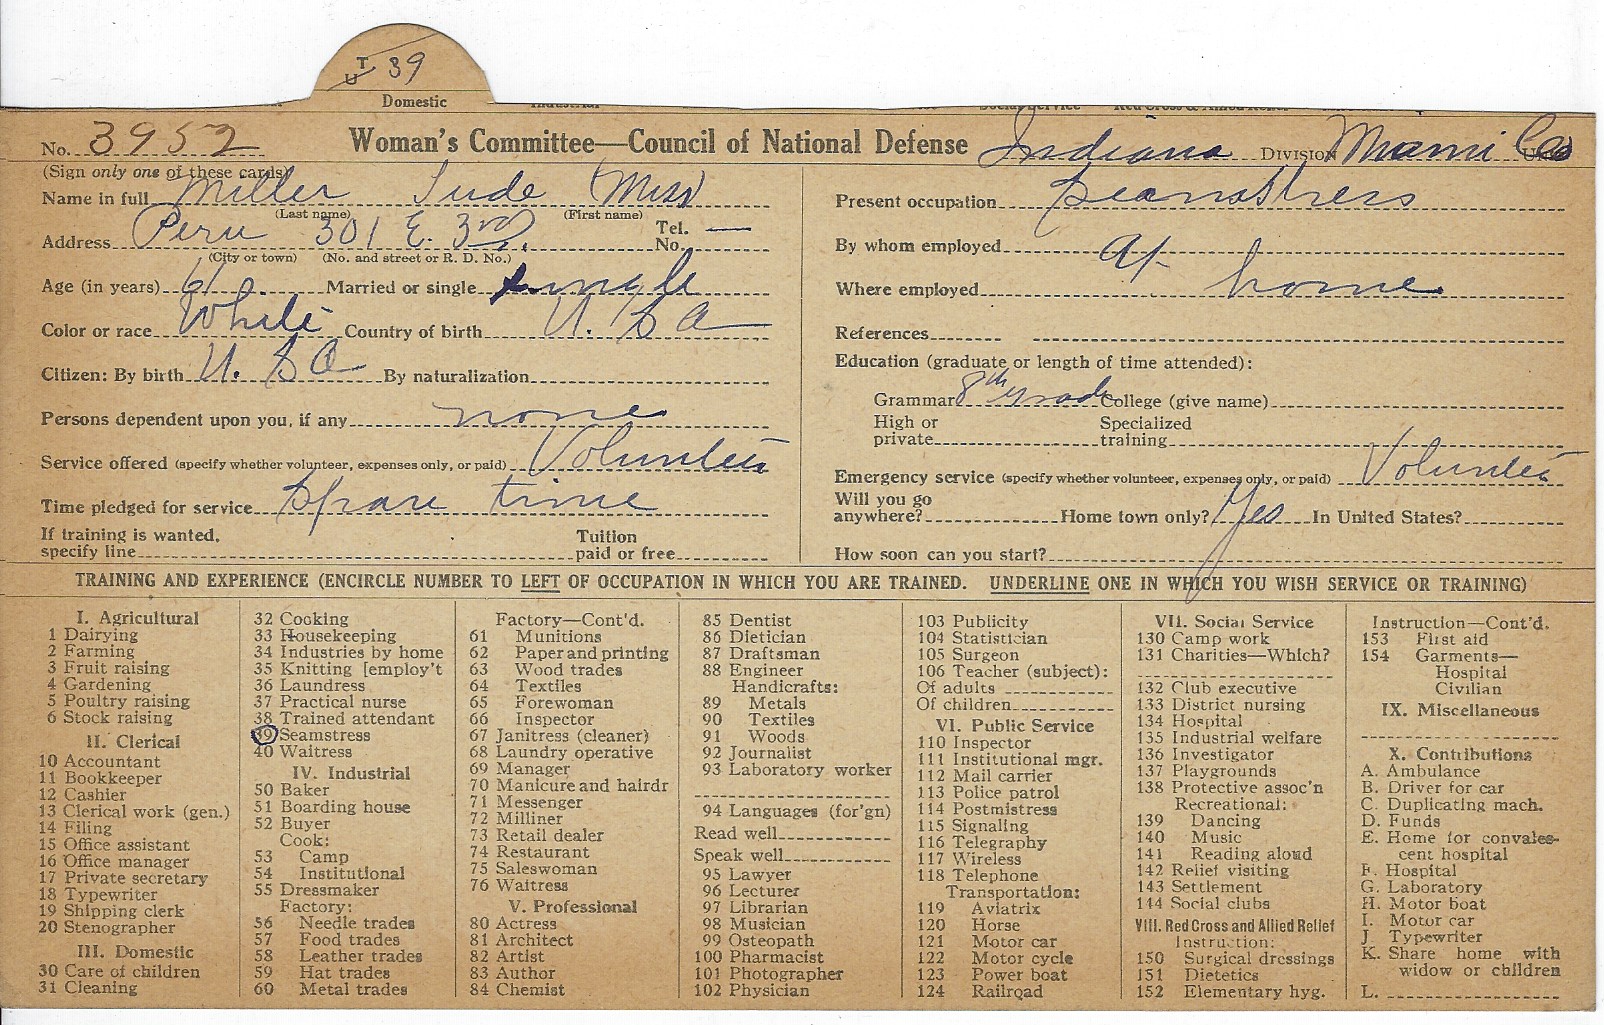 T U 39
Domestic
No. 3952 Woman's Committee—Council of National Defense Indiana DIVISION Miami Co
(Sign only one of these cards)
Name in full Miller Jude (Miss)
(Last name) (First name)
Address Peru 301 E. 3rd Tel. No. —
(City or town) (No. and street or R. D. No.)
Age (in years) 61 Married or single single
Color or race White Country of birth U. S A
Citizen: By birth U. S A By naturalization
Persons dependent upon you, if any none
Service offered (specify whether volunteer, expenses only, or paid) Volunteer
Time pledged for service Spare time
If training is wanted, specify line Tuition paid or free
Present occupation Seamstress
By whom employed At
Where employed home
References
Education (graduate or length of time attended):
Grammar 8th grade College (give name)
High or private Specialized training
Emergency service (specify whether volunteer, expenses only, or paid) Volunteer
Will you go anywhere? Home town only? Yes In United States?
How soon can you start?
TRAINING AND EXPERIENCE (ENCIRCLE NUMBER TO LEFT OF OCCUPATION IN WHICH YOU ARE TRAINED. UNDERLINE ONE IN WHICH YOU WISH SERVICE OR TRAINING)
I. Agricultural
1 Dairying
2 Farming
3 Fruit raising
4 Gardening
5 Poultry raising
6 Stock raising
II. Clerical
10 Accountant
11 Bookkeeper
12 Cashier
13 Clerical work (gen.)
14 Filing
15 Office assistant
16 Office manager
17 Private secretary
18 Typewriter
19 Shipping clerk
20 Stenographer
III. Domestic
30 Care of children
31 Cleaning
32 Cooking
33 Housekeeping
34 Industries by home
35 Knitting [employ't
36 Laundress
37 Practical nurse
38 Trained attendant
39 Seamstress
40 Waitress
IV. Industrial
50 Baker
51 Boarding house
52 Buyer
Cook:
53 Camp
54 Institutional
55 Dressmaker
Factory:
56 Needle trades
57 Food trades
58 Leather trades
59 Hat trades
60 Metal trades
Factory—Cont'd.
61 Munitions
62 Paper and printing
63 Wood trades
64 Textiles
65 Forewoman
66 Inspector
67 Janitress (cleaner)
68 Laundry operative
69 Manager
70 Manicure and hairdr
71 Messenger
72 Milliner
73 Retail dealer
74 Restaurant
75 Saleswoman
76 Waitress
V. Professional
80 Actress
81 Architect
82 Artist
83 Author
84 Chemist
85 Dentist
86 Dietician
87 Draftsman
88 Engineer
Handicrafts:
89 Metals
90 Textiles
91 Woods
92 Journalist
93 Laboratory worker
94 Languages (for'gn)
Read well
Speak well
95 Lawyer
96 Lecturer
97 Librarian
98 Musician
99 Osteopath
100 Pharmacist
101 Photographer
102 Physician
103 Publicity
104 Statistician
105 Surgeon
106 Teacher (subject):
Of adults
Of children
VI. Public Service
110 Inspector
111 Institutional mgr.
112 Mail carrier
113 Police patrol
114 Postmistress
115 Signaling
116 Telegraphy
117 Wireless
118 Telephone
Transportation:
119 Aviatrix
120 Horse
121 Motor car
122 Motor cycle
123 Power boat
124 Railroad
VII. Social Service
130 Camp work
131 Charities—Which?
132 Club executive
133 District nursing
134 Hospital
135 Industrial welfare
136 Investigator
137 Playgrounds
138 Protective assoc'n
Recreational:
139 Dancing
140 Music
141 Reading aloud
142 Relief visiting
143 Settlement
144 Social clubs
VIII. Red Cross and Allied Relief
Instruction:
150 Surgical dressings
151 Dietetics
152 Elementary hyg.
Instruction—Cont'd.
153 First aid
154 Garments—
Hospital
Civilian
IX. Miscellaneous
X. Contributions
A. Ambulance
B. Driver for car
C. Duplicating mach.
D. Funds
E. Home for convales-
cent hospital
F. Hospital
G. Laboratory
H. Motor boat
I. Motor car
J Typewriter
K. Share home with
widow or children
L.